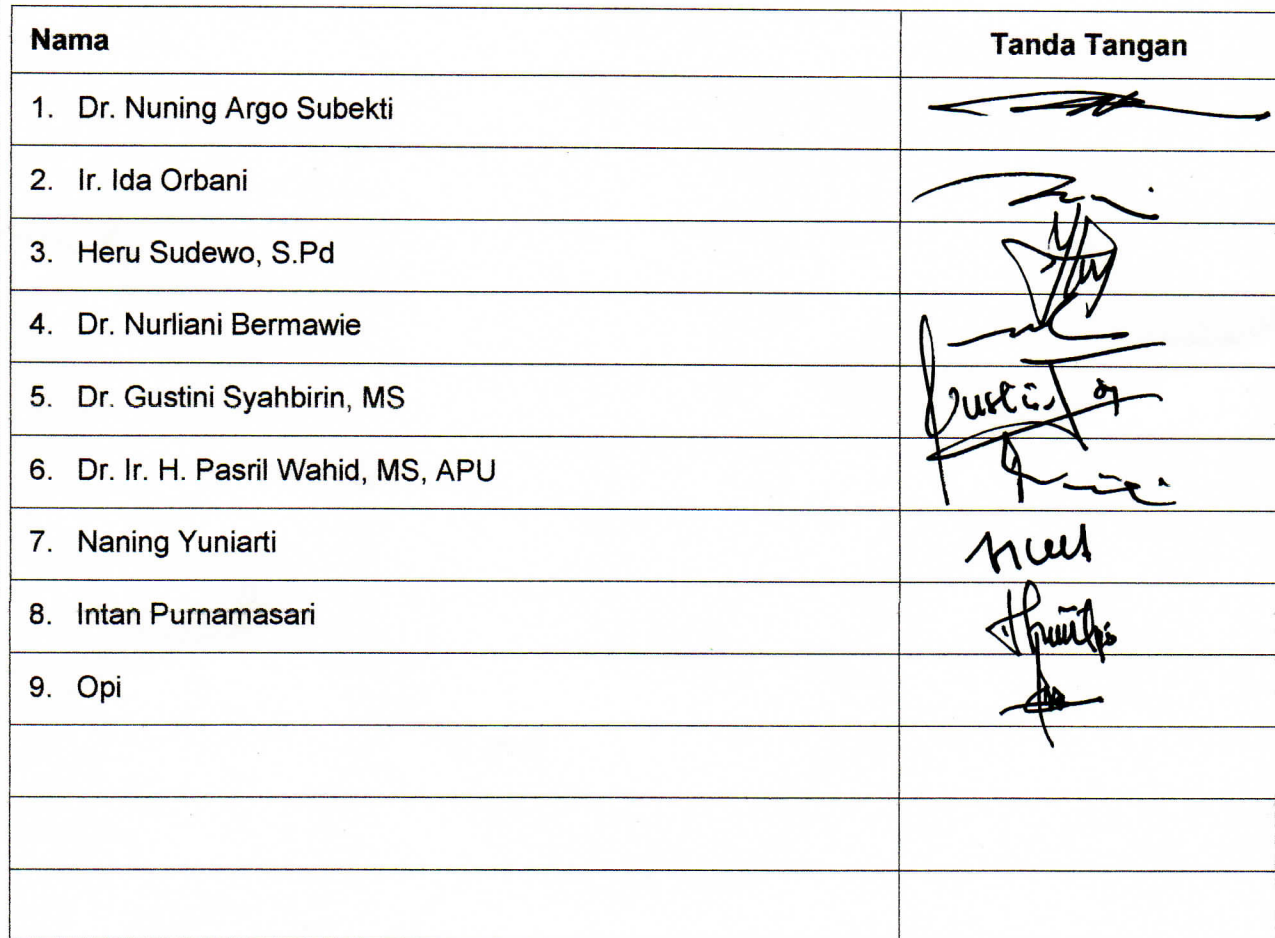 Nama Tanda Tangan
1. Dr. Nuning Argo Subekti
2. Ir. Ida Orbani
3. Heru Sudewo, S.Pd
4. Dr. Nurliani Bermawie
5. Dr. Gustini Syahbirin, MS
6. Dr. Ir. H. Pasril Wahid, MS, APU
7. Naning Yuniarti
8. Intan Purnamasari
9. Opi